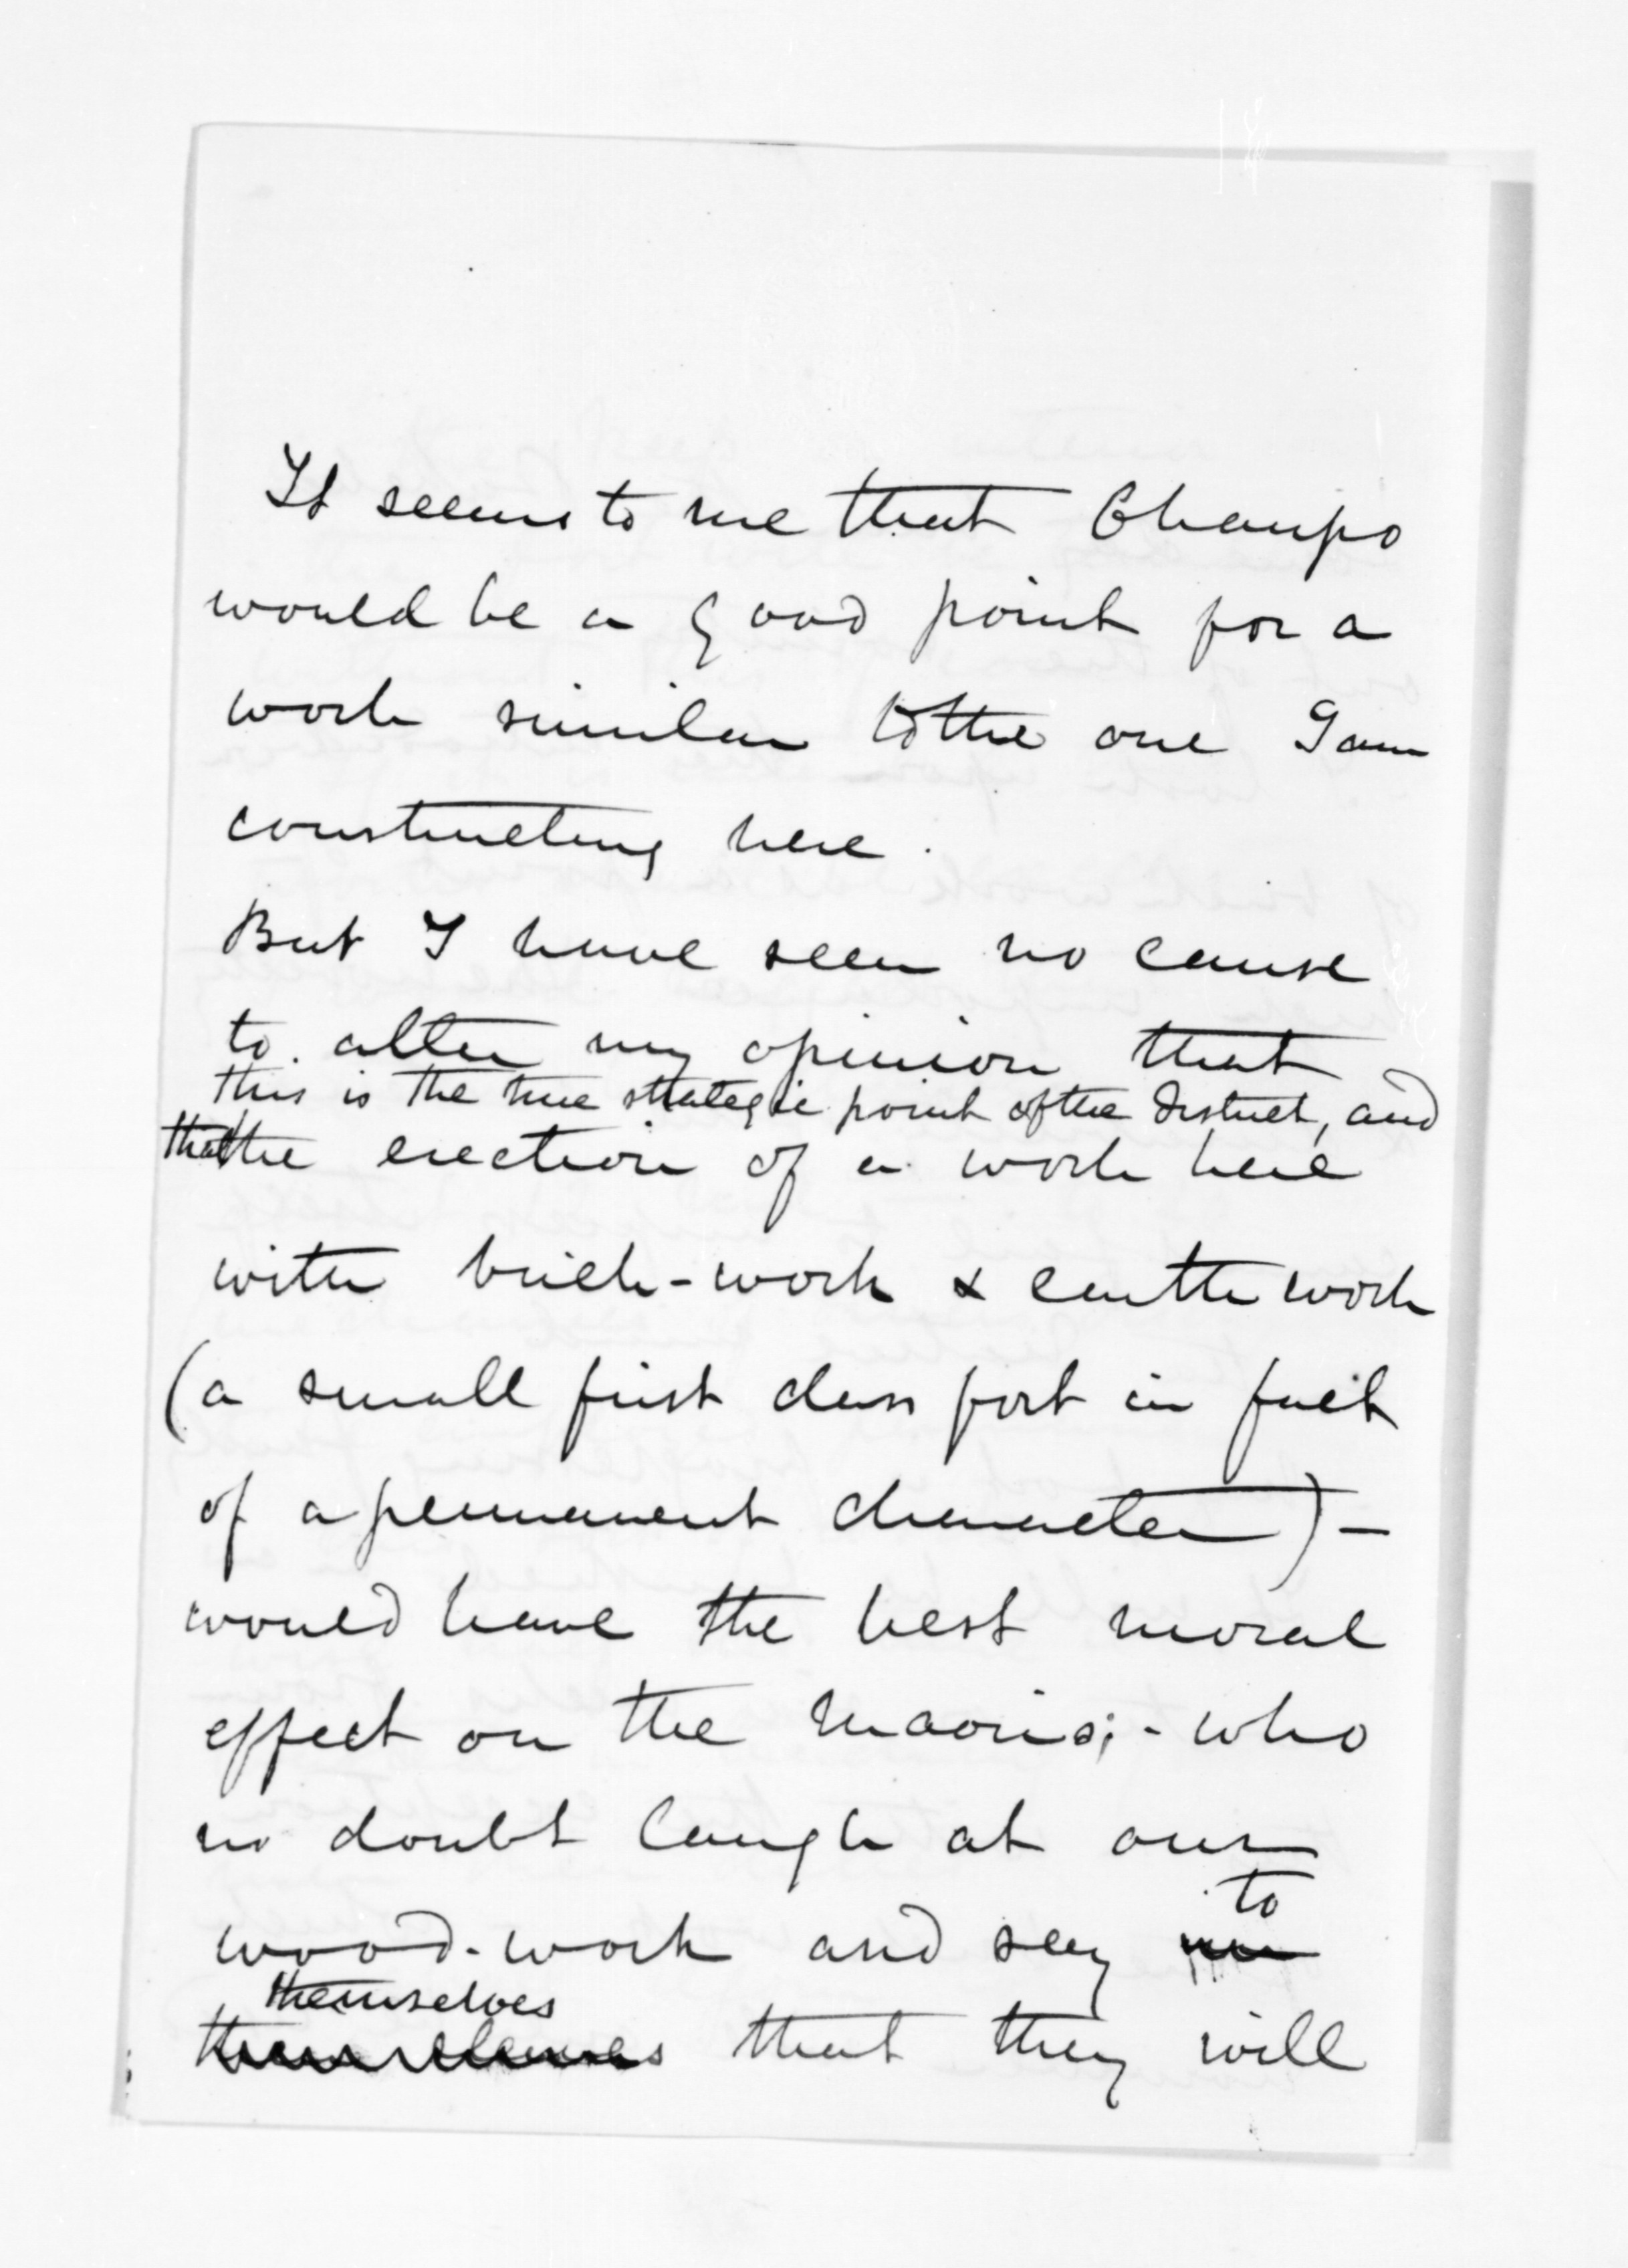 It seems to me that Ohaupo
would be a good point for a
work similar to the one I am
constructing here.
But I have seen no cause
to alter my opinion that
this is the true strategic point of the District, and
that the erection of a work here
with brick-work & earth work
(a small first class fort in fact
of a permanent character) -
would have the best moral
effect on the Maoris; - who
no doubt laugh at our
to
wood-work and say
themselves
that they will